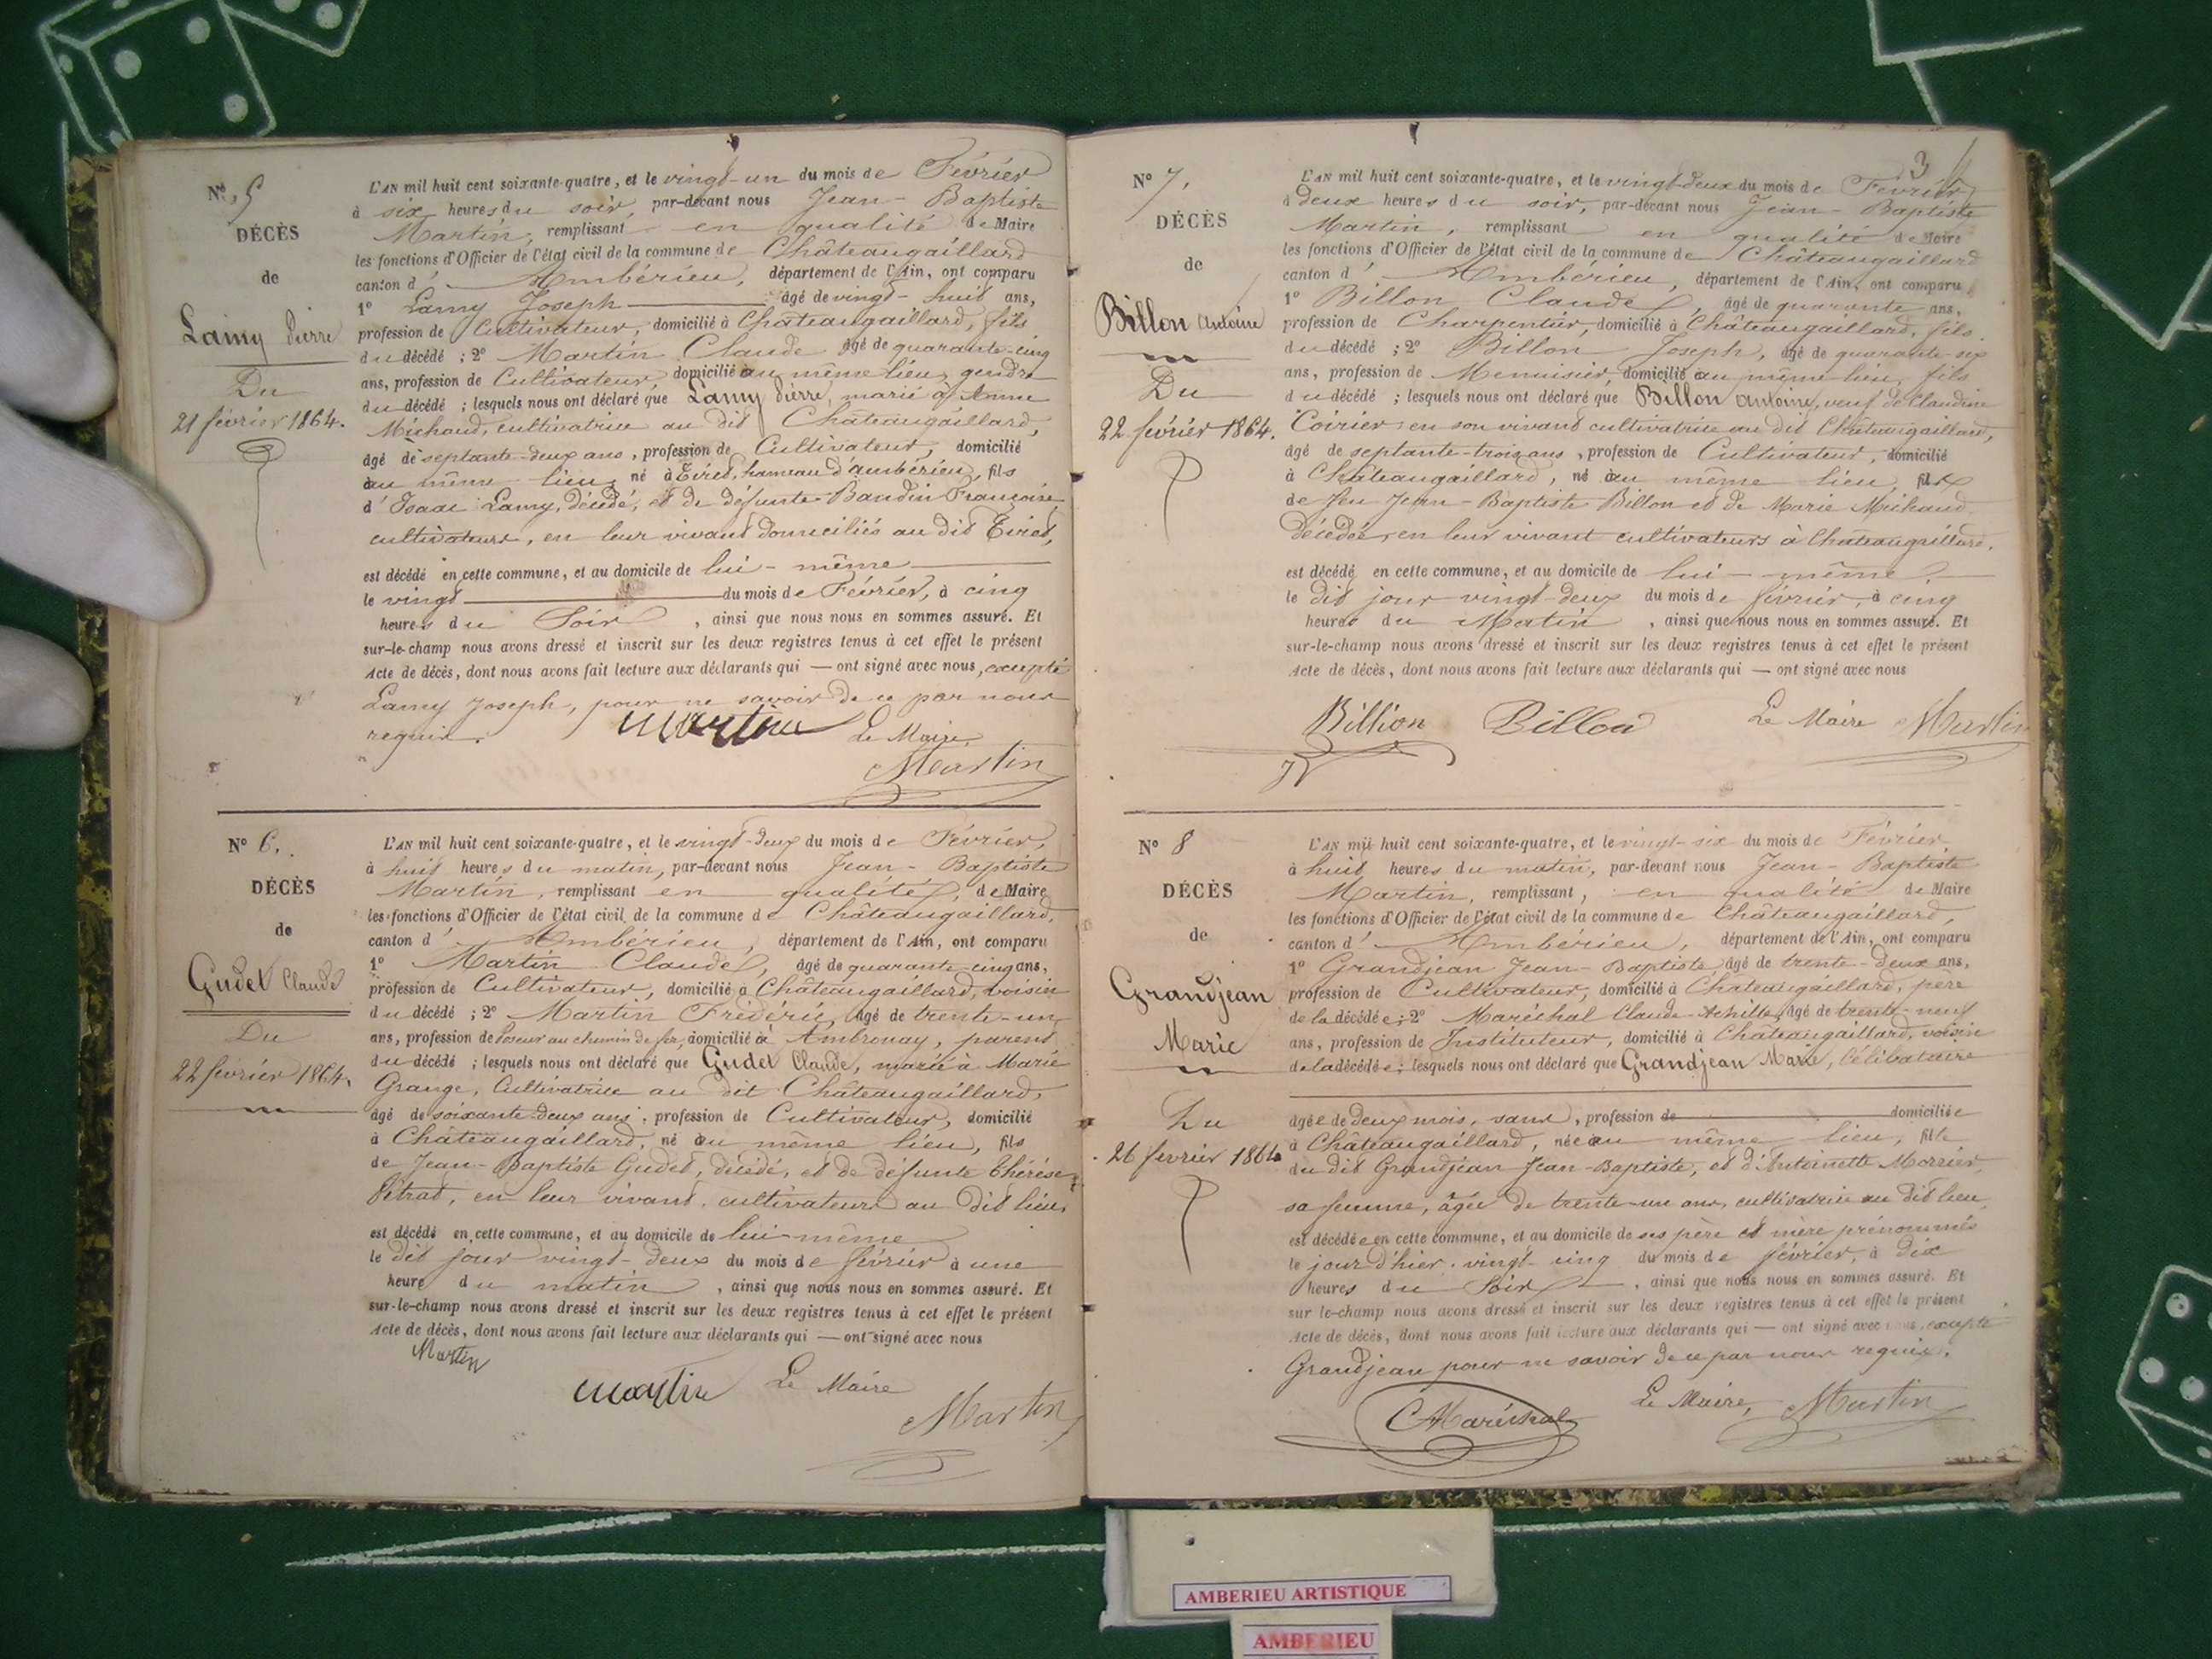 N° 5
DÉCÈS
de
Lamy Pierre
Du
21 février 1864.
L'AN mil huit cent soixante-quatre, et le vingt-un du mois de Février
à six heures du soir, par-devant nous Jean-Baptiste
Martin, remplissant en qualité de Maire
les fonctions d'Officier de l'état civil de la commune de Châteaugaillard
canton d'Ambérieu, département de l'Ain, ont comparu
1° Lamy Joseph âgé de vingt-huit ans,
profession de Cultivateur, domicilié à Châteaugaillard, fils
du décédé ; 2° Martin Claude âgé de quarante-cinq
ans, profession de Cultivateur, domicilié au même lieu, gendre
du décédé ; lesquels nous ont déclaré que Lamy Pierre, marié à Anne
Michaud, cultivatrice au dit Châteaugaillard,
âgé de septante-deux ans, profession de Cultivateur, domicilié
au même lieu, né à Tiret, hameau d'Ambérieu, fils
d'Isaac Lamy, décédé, et de défunte Baudin Françoise,
cultivateurs, en leur vivant domiciliés au dit Tiret,
est décédé en cette commune, et au domicile de lui-même
le vingt du mois de Février, à cinq
heures du Soir, ainsi que nous nous en sommes assuré. Et
sur-le-champ nous avons dressé et inscrit sur les deux registres tenus à cet effet le présent
Acte de décès, dont nous avons fait lecture aux déclarants qui — ont signé avec nous, excepté
Lamy Joseph, pour ne savoir de ce par nous
requis.
Martin Le Maire,
Martin
N° 6.
DÉCÈS
de
Gudet Claude
Du
22 février 1864.
L'AN mil huit cent soixante-quatre, et le vingt-deux du mois de Février,
à huit heures du matin, par-devant nous Jean-Baptiste
Martin, remplissant en qualité, de Maire
les fonctions d'Officier de l'état civil de la commune de Châteaugaillard,
canton d'Ambérieu, département de l'Ain, ont comparu
1° Martin Claude, âgé de quarante-cinq ans,
profession de Cultivateur, domicilié à Châteaugaillard, voisin
du décédé ; 2° Martin Frédéric, âgé de trente-un
ans, profession de Poseur au chemin de fer, domicilié à Ambronay, parent
du décédé ; lesquels nous ont déclaré que Gudet Claude, marié à Marie
Grange, Cultivatrice au dit Châteaugaillard,
âgé de soixante-deux ans, profession de Cultivateur, domicilié
à Châteaugaillard, né au même lieu, fils
de Jean-Baptiste Gudet, décédé, et de défunte Thérèse
Pitrat, en leur vivant, cultivateurs au dit lieu,
est décédé en cette commune, et au domicile de lui-même
le dit jour vingt-deux du mois de février à une
heure du matin, ainsi que nous nous en sommes assuré. Et
sur-le-champ nous avons dressé et inscrit sur les deux registres tenus à cet effet le présent
Acte de décès, dont nous avons fait lecture aux déclarants qui — ont signé avec nous
Martin
Martin Le Maire
Martin
3
N° 7.
DÉCÈS
de
Billon Antoine
Du
22 février 1864.
L'AN mil huit cent soixante-quatre, et le vingt-deux du mois de Février
à deux heures du soir, par-devant nous Jean-Baptiste
Martin, remplissant en qualité de Maire
les fonctions d'Officier de l'état civil de la commune de Châteaugaillard
canton d'Ambérieu, département de l'Ain, ont comparu
1° Billon Claude, âgé de quarante ans,
profession de Charpentier, domicilié à Châteaugaillard, fils
du décédé ; 2° Billon Joseph, âgé de quarante-six
ans, profession de Menuisier, domicilié au même lieu, fils
du décédé ; lesquels nous ont déclaré que Billon Antoine, veuf de Claudine
Coirier, en son vivant cultivatrice au dit Châteaugaillard,
âgé de septante-trois ans, profession de Cultivateur, domicilié
à Châteaugaillard, né au même lieu, fils
de feu Jean-Baptiste Billon et de Marie Michaud
décédée, en leur vivant cultivateurs à Châteaugaillard,
est décédé en cette commune, et au domicile de lui-même,
le dit jour vingt-deux du mois de février, à cinq
heures du Matin, ainsi que nous nous en sommes assuré. Et
sur-le-champ nous avons dressé et inscrit sur les deux registres tenus à cet effet le présent
Acte de décès, dont nous avons fait lecture aux déclarants qui — ont signé avec nous
Billion Billon Le Maire Martin
N° 8
DÉCÈS
de
Grandjean
Marie
Du
26 février 1864
L'AN mil huit cent soixante-quatre, et le vingt-six du mois de Février,
à huit heures du matin, par-devant nous Jean-Baptiste
Martin, remplissant, en qualité de Maire
les fonctions d'Officier de l'état civil de la commune de Châteaugaillard,
canton d'Ambérieu, département de l'Ain, ont comparu
1° Grandjean Jean-Baptiste, âgé de trente-deux ans,
profession de Cultivateur, domicilié à Châteaugaillard, père
de la décédée ; 2° Maréchal Claude-Achille, âgé de trente-neuf
ans, profession de Instituteur, domicilié à Châteaugaillard, voisin
de la décédée ; lesquels nous ont déclaré que Grandjean Marie, Célibataire
âgée de deux mois, sans, profession de domiciliée
à Châteaugaillard, née au même lieu, fille
du dit Grandjean Jean-Baptiste, et d'Antoinette Morrier,
sa femme, âgée de trente-un ans, cultivatrice au dit lieu,
est décédée en cette commune, et au domicile de ses père et mère prénommés
le jour d'hier, vingt-cinq du mois de février, à dix
heures du Soir, ainsi que nous nous en sommes assuré. Et
sur-le-champ nous avons dressé et inscrit sur les deux registres tenus à cet effet le présent
Acte de décès, dont nous avons fait lecture aux déclarants qui — ont signé avec nous, excepté
Grandjean pour ne savoir de ce par nous requis.
CMaréchal Le Maire, Martin
AMBERIEU ARTISTIQUE
AMBERIEU